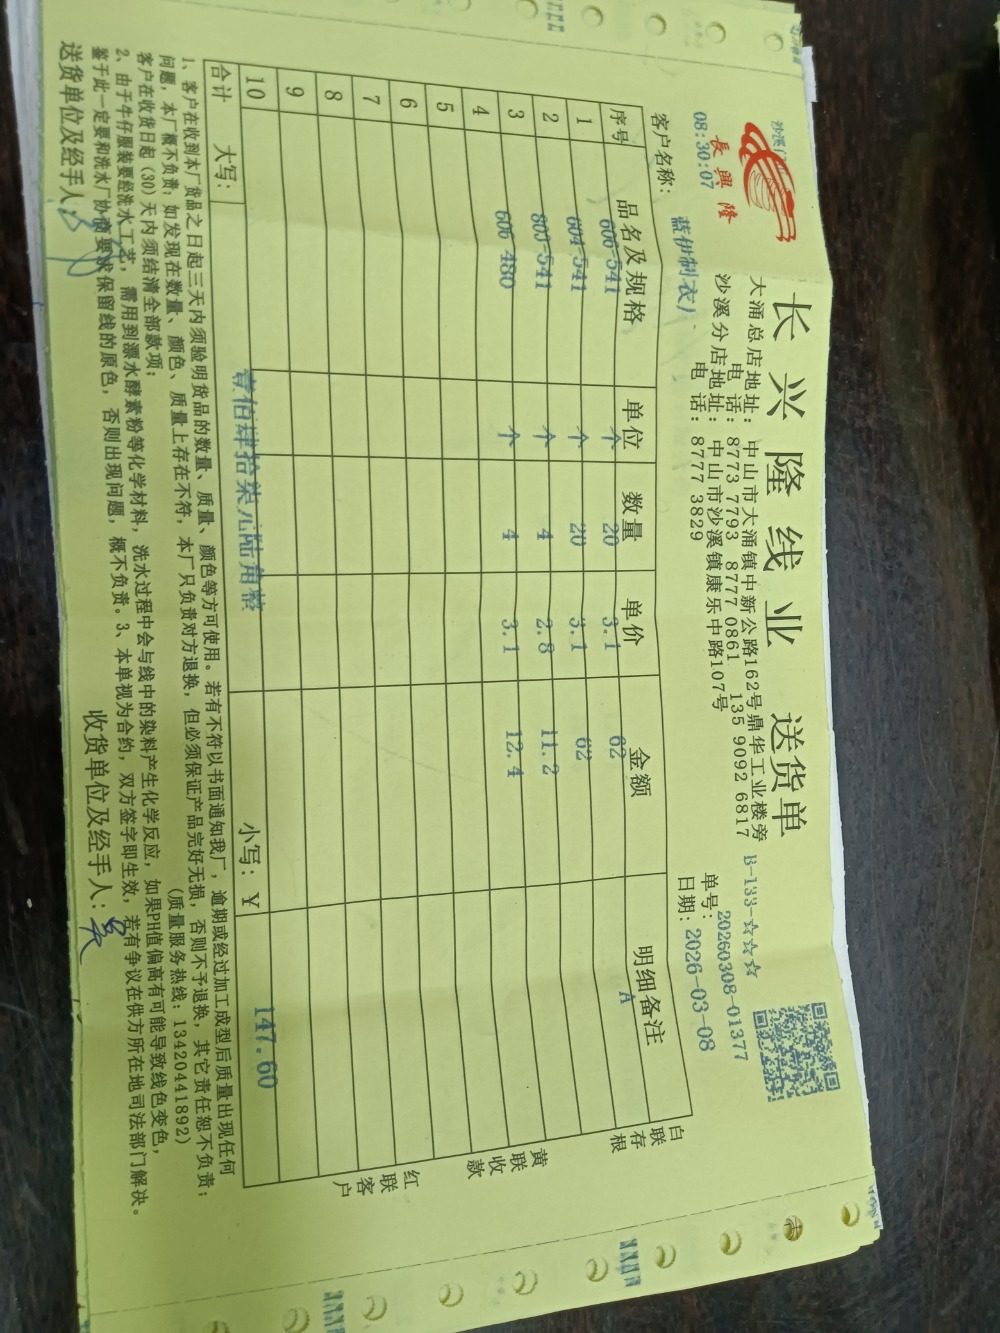 长兴隆线业 送货单
長興隆
大涌总店地址: 中山市大涌镇中新公路162号鼎华工业楼旁
电 话: 8773 7793 8777 0861 135 9092 6817
沙溪分店地址: 中山市沙溪镇康乐中路107号
电 话: 8777 3829
B-133-☆☆☆
08:30:07
单号: 20260308-01377
客户名称: 蓝伊制衣厂
日期: 2026-03-08
序号 品名及规格 单位 数量 单价 金额 明细备注
1 606-541 个 20 3.1 62 A
2 604-541 个 20 3.1 62
3 803-541 个 4 2.8 11.2
4 606 480 个 4 3.1 12.4
5
6
7
8
9
10
合计 大写: 壹佰肆拾柒元陆角整 小写: ¥ 147.60
白联存根
黄联收款
红联客户
1、客户在收到本厂货品之日起三天内须验明货品的数量、质量、颜色等方可使用。若有不符以书面通知我厂，逾期或经过加工成型后质量出现任何
问题，本厂概不负责；如发现在数量、颜色、质量上存在不符，本厂只负责对方退换，但必须保证产品完好无损，否则不予退换，其它责任恕不负责；
客户在收货日起（30）天内须结清全部款项； (质量服务热线: 13420441892)
2、由于牛仔服装要经洗水工艺，需用到漂水酵素粉等化学材料，洗水过程中会与线中的染料产生化学反应，如果PH值偏高有可能导致线色变色，
鉴于此一定要和洗水厂协商要求保留线的原色，否则出现问题，概不负责。3、本单视为合约，双方签字即生效，若有争议在供方所在地司法部门解决。
送货单位及经手人: 收货单位及经手人: 吴